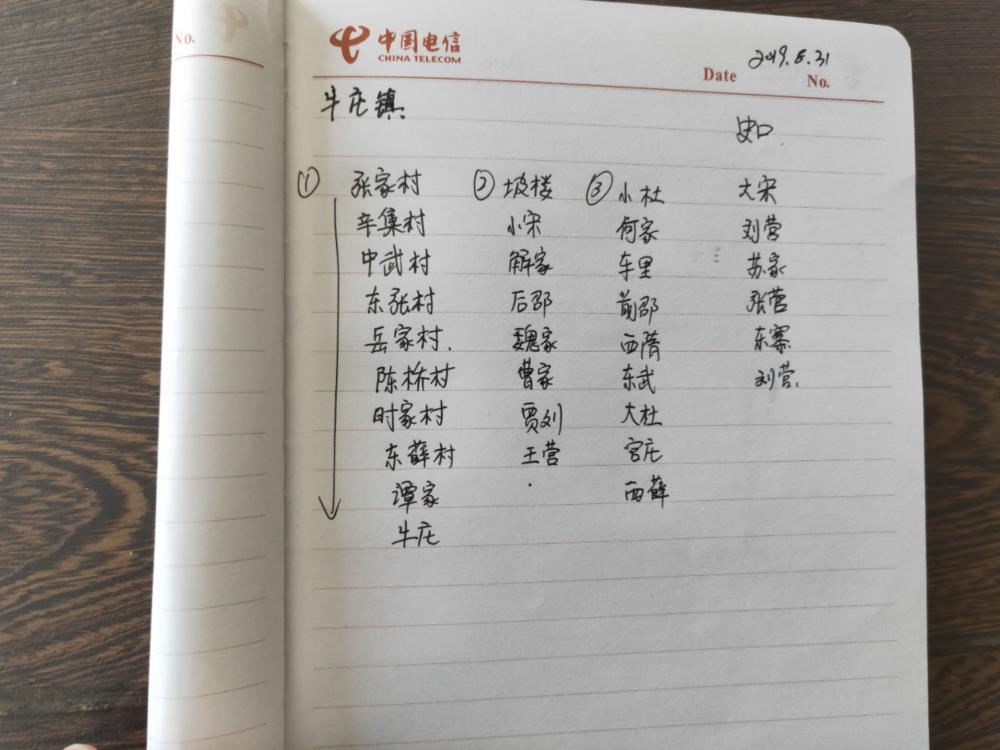 No.
中国电信
CHINA TELECOM
Date 2019.5.31 No.
牛庄镇
史口
① 张家村 ② 坡楼 ③ 小杜 大宋
辛集村 小宋 何家 刘营
中武村 解家 车里 苏家
东张村 后邵 前邵 张营
岳家村. 魏家 西隋 东寨
陈桥村 曹家 东武 刘营.
时家村 贾刘 大杜
东薛村 王营 宫庄
谭家 西薛
牛庄